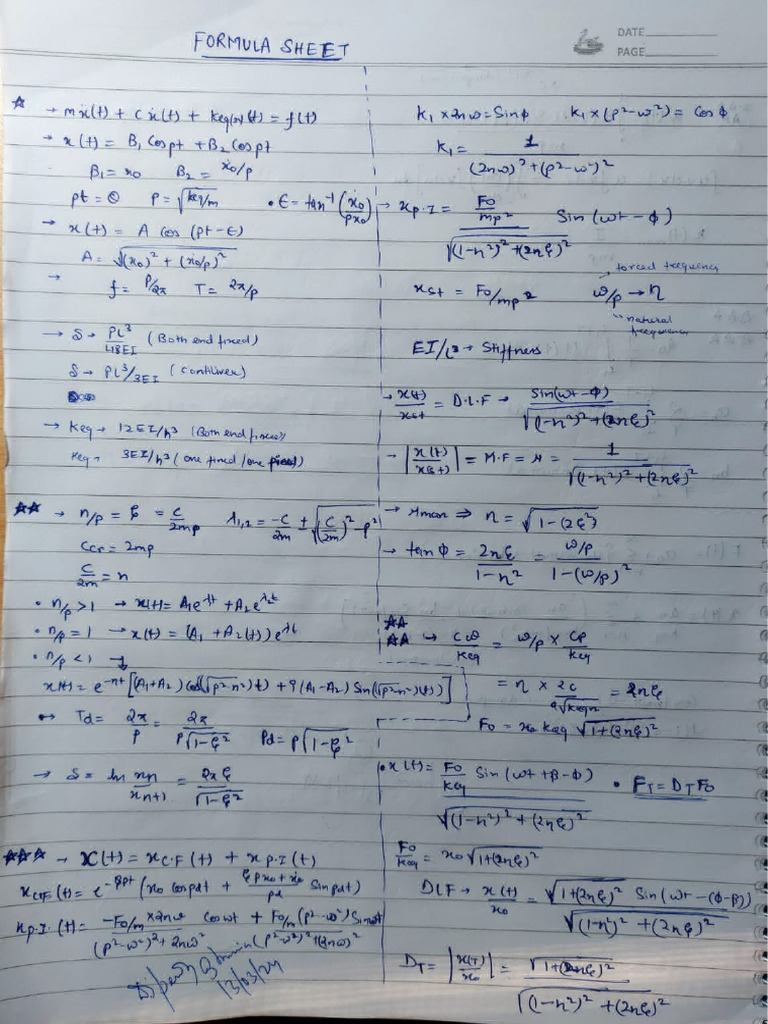 FORMULA SHEET
DATE
PAGE
☆ → mẍ(t) + cẋ(t) + Keq(x)(t) = f(t)
→ x(t) = B₁ Cos pt + B₂ Cos pt
B₁ = x₀ B₂ = ẋ₀/p
pt = θ P = √keq/m • ε = tan⁻¹(ẋ₀/px₀)
→ x(t) = A cos (pt - ε)
A = √(x₀)² + (ẋ₀/p)²
→ f = P/2π T = 2π/p
→ δ → PL³/48EI (Both end fixed)
δ → PL³/3EI (Cantiliver)
→ Keq → 12EI/h³ (Both end fixed)
Keq → 3EI/h³ (one fixed/one pinned)
☆☆ → n/p = ξ = C/2mp λ₁,₂ = -C/2m ± √(C/2m)² - p²
Ccr = 2mp
C/2m = n
• n/p > 1 → x(t) = A₁e^λ₁t + A₂e^λ₂t
• n/p = 1 → x(t) = (A₁ + A₂(t)) e^λt
• n/p < 1 →
x(t) = e^-nt [(A₁+A₂) (cos(√p²-n²)t) + i(A₁-A₂) Sin(√p²-n²)(t))]
↔ Td = 2π/p = 2π/p√1-ξ² Pd = p√1-ξ²
→ δ = ln xn/xn+1 = 2πξ/√1-ξ²
☆☆☆ → X(t) = xC.F(t) + xP.I(t)
xC.F(t) = e^-ξpt (x₀ cos pdt + ξpx₀ + ẋ₀/pd Sin pdt)
xP.I.(t) = -F₀/m × 2nω/(p²-ω²)² + 2nω² cos ωt + F₀/m (p²-ω²) Sin ωt/(p²-ω²)² + (2nω)²
13/03/24
K₁ × 2nω = Sin ϕ K₁ × (p²-ω²) = Cos ϕ
K₁ = 1/(2nω)² + (p²-ω²)²
→ xP.I = F₀/mp²/√(1-η²)² + (2ηξ)² Sin (ωt - ϕ)
forced frequency
xst = F₀/mp² ω/p → η
natural frequency
EI/L³ → Stiffness
→ x(t)/xst = D.L.F → Sin(ωt-ϕ)/√(1-η²)² + (2ηξ)²
→ |x(t)/xst| = M.F = μ = 1/√(1-η²)² + (2ηξ)²
→ μmax ⇒ η = √1-(2ξ²)
→ tan ϕ = 2ηξ/1-η² = ω/p/1-(ω/p)²
☆☆
☆☆ → Cω/Keq = ω/p × Cp/Keq
= η × 2C/2√keqm = 2ηξ
F₀ = x₀ Keq √1+(2ηξ)²
• x(t) = F₀/Keq Sin (ωt + β - ϕ)/√(1-η²)² + (2ηξ)² • FT = DT F₀
F₀/Keq = x₀ √1+(2ηξ)²
DLF → x(t)/x₀ = √1+(2ηξ)² Sin (ωt - (ϕ-β))/√(1-η²)² + (2ηξ)²
DT = |x(t)/x₀| = √1+(2ηξ)²/√(1-η²)² + (2ηξ)²